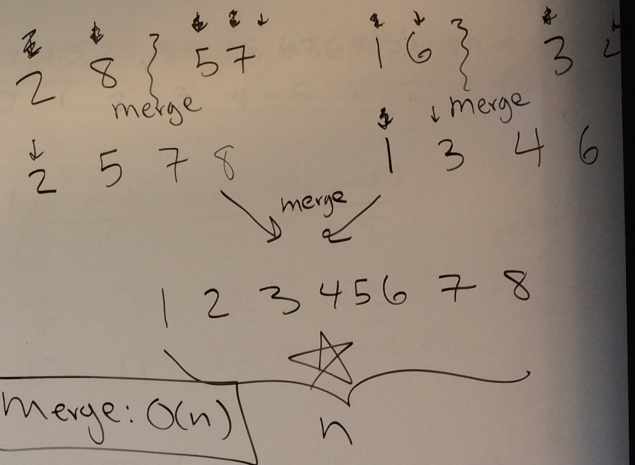 2 8 } 5 7 1 6 } 3 4
merge merge
2 5 7 8 1 3 4 6
merge
1 2 3 4 5 6 7 8
merge: O(n)
n